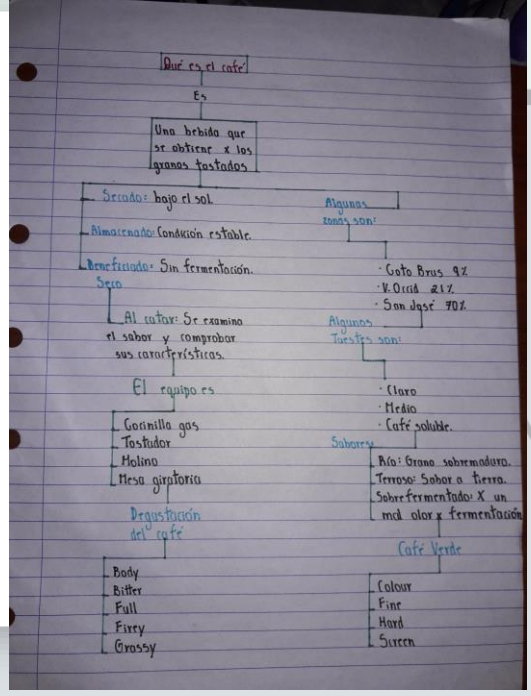 Qué es el café
Es
Una bebida que
se obtiene x los
granos tostados
Secado: bajo el sol.
Almacenado: Condición estable.
Beneficiado: Sin fermentación.
Seco
Al catar: Se examina
el sabor y comprobar
sus características.
El equipo es
Cocinilla gas
Tostador
Molino
Mesa giratoria
Degustación
del café
Body
Bitter
Full
Firey
Grassy
Algunas
zonas son:
· Coto Brus 9%
· V. Occid 21%
· San José 70%
Algunos
Tuestes son:
· Claro
· Medio
· Café soluble.
Sabores
Río: Grano sobremaduro.
Terroso: Sabor a tierra.
Sobrefermentado: X un
mal olor x fermentación
Café Verde
Colour
Fine
Hard
Screen